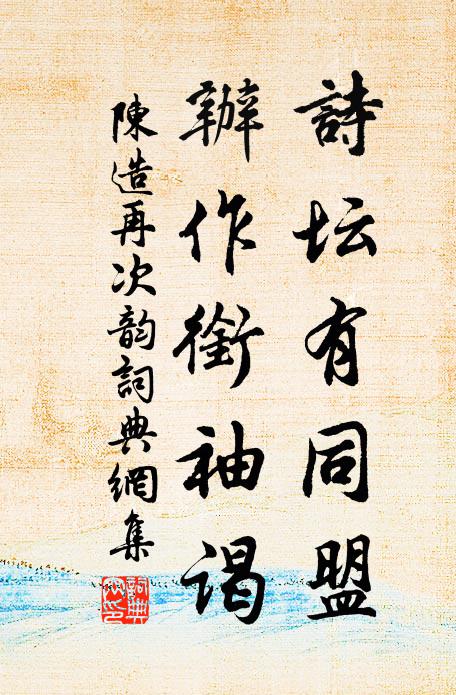 詩坛有同盟
辦作銜袖谒
陳造再次韵詞典網集